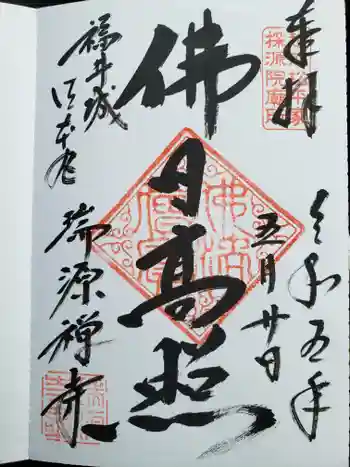 奉拝
令和五年
五月廿日
佛日高照
福井城
旧本丸
瑞源禅寺